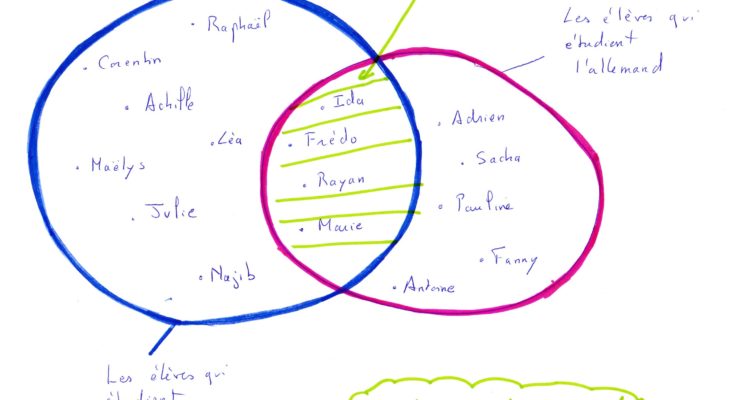 Raphaël
Corentin
Achille
Léa
Maëlys
Julie
Najib
Ida
Frédo
Rayan
Marie
Adrien
Sacha
Pauline
Fanny
Antoine
Les élèves qui
étudient
l'allemand
Les élèves qui
étudient